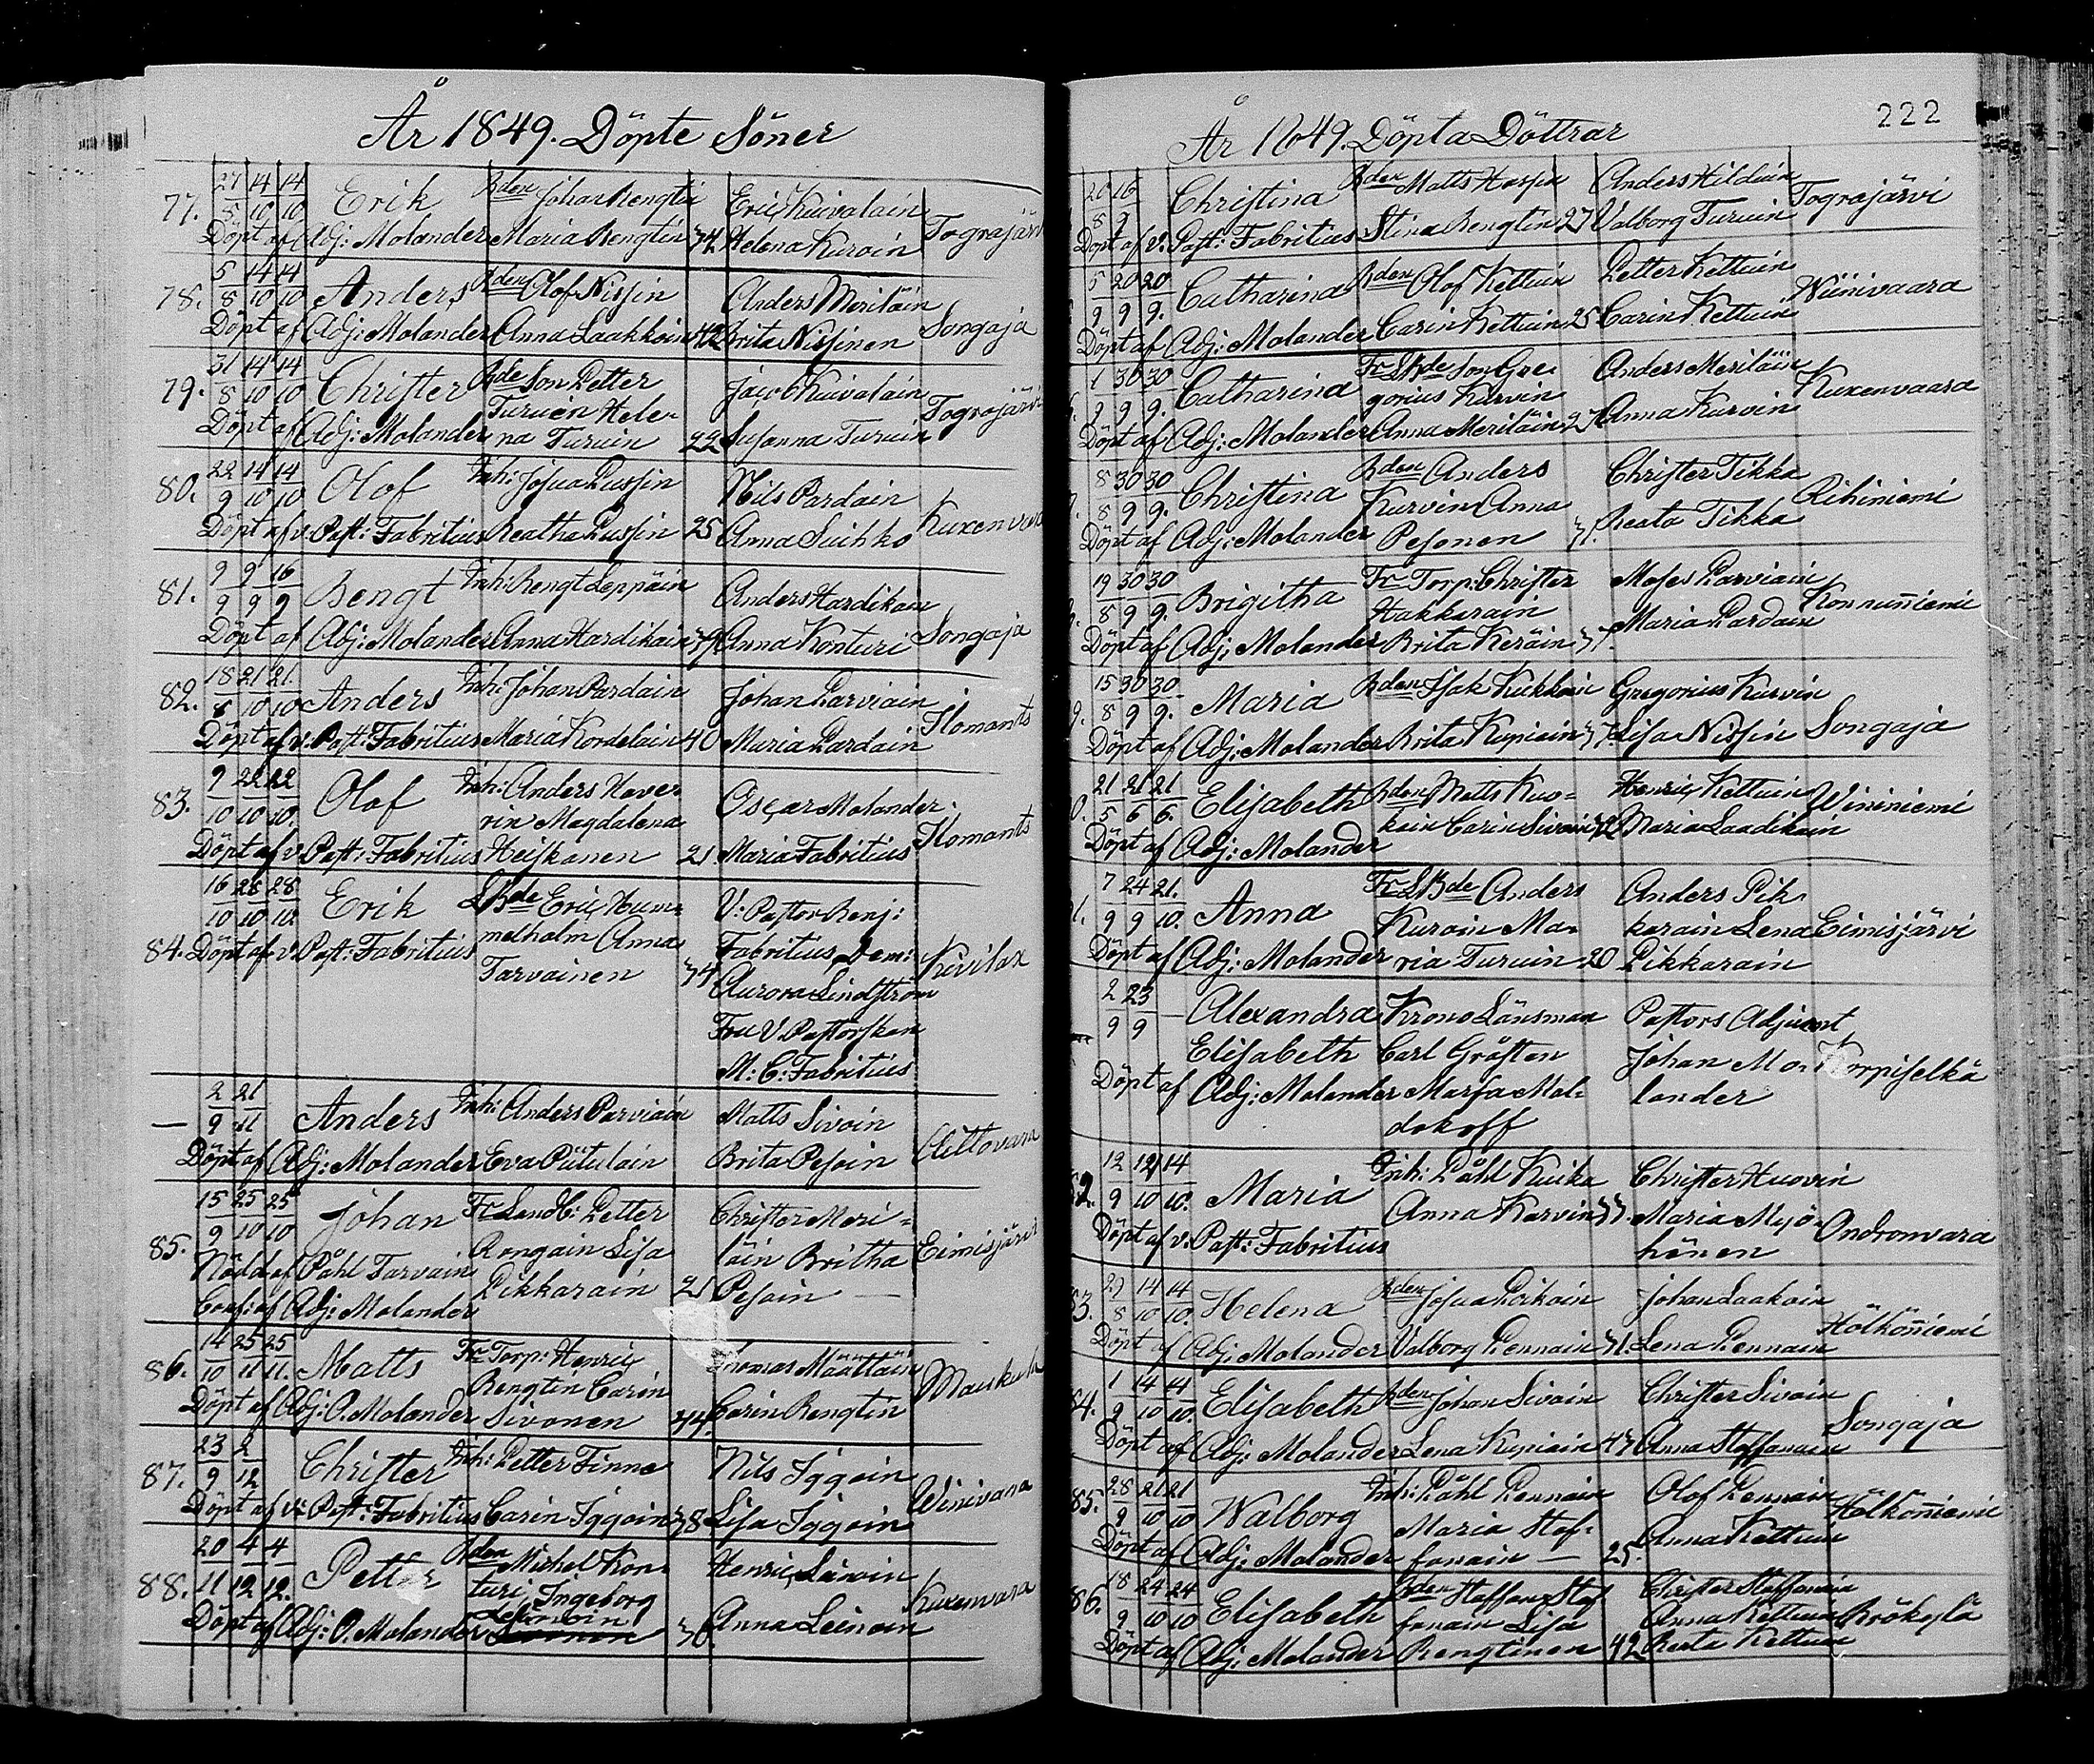 År 1849. Döpte Söner
77. 27/5 14/10 14/10 Erik Bden Johan Bengtin Eric Kuivalain Tograjärvi
Döpt af Adj: Molander Maria Bengtin 34 Helena Kurvin
78. 5/8 14/10 14/10 Anders Bden Olof Nissin Anders Meriläin Songaja
Döpt af Adj: Molander Anna Laakkoin 42 Brita Nissinen
79. 31/8 14/10 14/10 Christer Bde Son Petter Jacob Kuivalain Tograjärvi
Turuin Hele-
Döpt af Adj: Molander na Turuin 22 Susanna Turuin
80. 22/9 14/10 14/10 Olof Inh: Josua Pussin Nils Pardain Kuxenvara
Döpt af v: Past: Fabritius Beatha Pussin 25 Anna Suihko
81. 9/9 9/9 16/9 Bengt Inh: Bengt Leppäin Anders Hardikain Songaja
Döpt af Adj: Molander Anna Hardikain 39 Anna Konturi
82. 18/8 21/10 21/10 Anders Inh: Johan Pardain Johan Parviain Ilomants
Döpt af v: Past: Fabritius Maria Kordelain 40 Maria Pardain
83. 9/10 22/10 22/10 Olof Inh: Anders Haver- Oscar Molander Ilomants
rin Magdalena
Döpt af v: Past: Fabritius Heiskanen 21 Maria Fabritius
16/10 28/10 28/10 Erik LBde Eric Hum- V: Pastor Benj:
84. Döpt af v: Past: Fabritius melholm Anna Fabritius, Dem: Kivilax
Tarvainen 34 Aurora Lindström
Fru V. Pastorskan
M: C: Fabritius
— 2/9 21/11 Anders Inh: Anders Parviain Matts Sivoin
Döpt af Adj: Molander Eva Piitulain Brita Pesoin
15/9 25/10 25/10 Johan Fr Landb: Petter Christer Meri-
85. Rongain Lisa läin Britha Eimisjärvi
Nödd: af Påhl Tarvain Pikkarain 21 Pesoin —
Conf: af Adj: Molander
86. 14/10 25/11 25/11. Matts Fr Torp: Henric Thomas Määttäin Maukula
Bengtin Carin
Döpt af Adj: O. Molander Sivonen 44. Carin Bengtin
87. 23/9 2/12 Christer Inh: Petter Finne Nils Iggoin Winivara
Döpt af v: Past: Fabritius Carin Iggoin 38 Lisa Iggoin
88. 20/11 4/12 4/12. Petter Bden Michel Kon- Henric Leinoin Kuxenvara
turi, Ingeborg
Döpt af Adj: O. Molander 36 Anna Leinoin
222
År 1849. Döpta Döttrar
20/8 16/9 Christina Bden Matts Hassin Anders Hilduin Tograjärvi
Döpt af v: Past: Fabritius Stina Bengtin 27 Valborg Turuin
5/9 20/9 20/9. Catharina Bden Olof Kettuin Petter Kettuin Wiinivaara
Döpt af Adj: Molander Carin Kettuin 25 Carin Kettuin
1/9 30/9 30/9. Catharina Fr LBde Son Gre- Anders Meriläin Kuxenvaara
gorius Kurvin
Döpt af Adj: Molander Anna Meriläin 27 Anna Kurvin
8/8 30/9 30/9. Christina Bden Anders Christer Tikka Rihiniemi
Kurvin Anna
Döpt af Adj: Molander Pesonen 31. Beata Tikka
19/8 30/9 30/9. Brigitha Fr Torp: Christer Moses Parviain Konnunniemi
Hakkarain
Döpt af Adj: Molander Brita Keräin 37. Maria Pardain
15/8 30/9 30/9. Maria Bden Isak Kukkoin Gregorius Kurvin
Döpt af Adj: Molander Brita Kupiain 37. Lisa Nissin Songaja
21/5 21/6 21/6. Elisabeth Bden Matts Kuo- Henric Kettuin Wininiemi
kain Carin Sivoin 32 Maria Laadikain
Döpt af Adj: Molander
7/9 24/9 21/10. Anna Fr LBde Anders Anders Pik-
Kuroin Ma- karain Lena Eimisjärvi
Döpt af Adj: Molander ria Turuin 20 Pikkarain
2/9 23/9 — Alexandra Krono Länsman Pastors Adjunct
Elisabeth Carl Gråsten Johan Mo- Korpiselkä
Döpt af Adj: Molander Marfa Mal- lander
dokoff
12/9 12/10 14/10. Maria Inh: Påhl Kuika Christer Huovin
Anna Karvin 33. Maria Myö- Ondronvara
Döpt af v: Past: Fabritius hänen
27/8 14/10 14/10. Helena Bden Josua Poikain Johan Laakain Hölkönniemi
Döpt af Adj: Molander Valborg Pennain 31. Lena Pennain
1/9 14/10 14/10. Elisabeth Bden Johan Sivoin Christer Sivoin
Songaja
Döpt af Adj: Molander Lena Kupiain 43 Anna Staffanain
85. 28/9 21/10 21/10 Walborg Inh: Påhl Pennain Olof Pennain Hölkönniemi
Maria Staf-
Döpt af Adj: Molander fanain — 25. Anna Kettuin
86. 18/9 24/10 24/10 Elisabeth Bden Staffan Staf- Christer Staffanain
fanain Lisa Anna Kettuin Krökylä
Döpt af Adj: Molander Bengtinen 42 Beata Kettuin